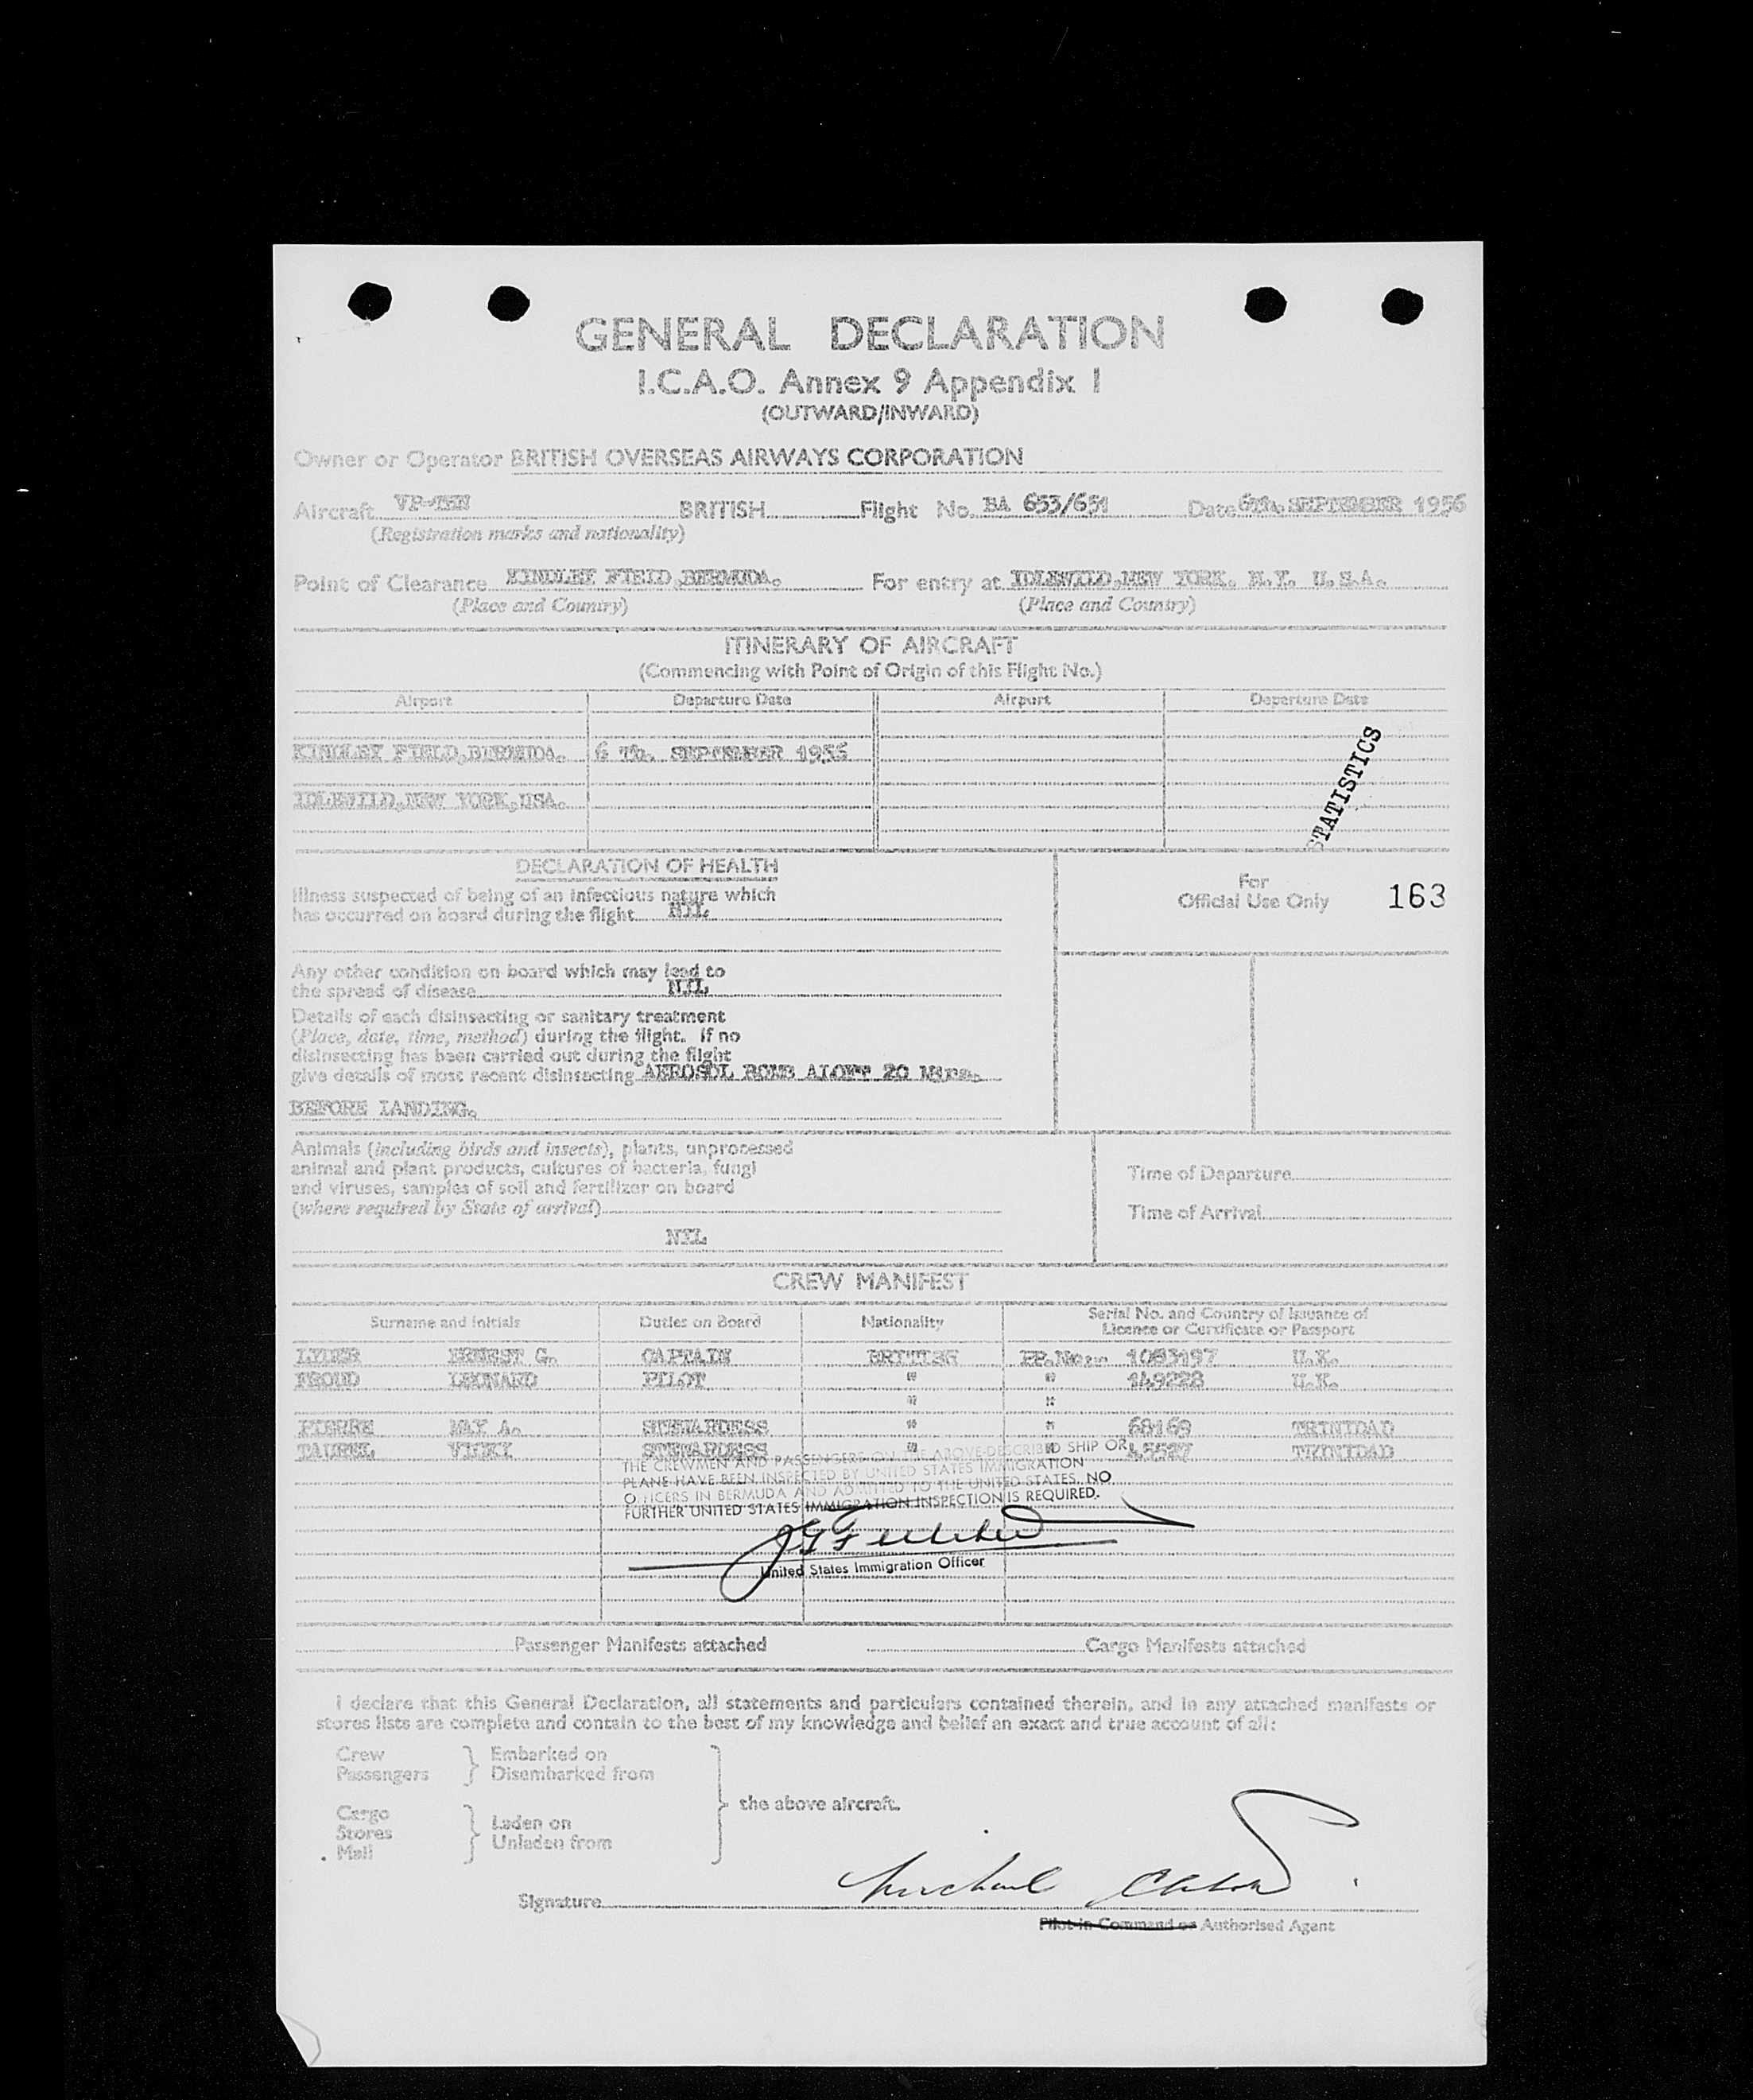 GENERAL DECLARATION
I.C.A.O. Annex 9 Appendix 1
(OUTWARD/INWARD)
Owner or Operator BRITISH OVERSEAS AIRWAYS CORPORATION
Aircraft BRITISH Flight No. BA 653/651 Date 6Th. SEPTEMBER 1956
(Registration marks and nationality)
Point of Clearance KINDLEY FIELD,BERMUDA. For entry at IDLEWILD,NEW YORK. N.Y. U.S.A.
(Place and Country) (Place and Country)
ITINERARY OF AIRCRAFT
(Commencing with Point of Origin of this Flight No.)
Airport Departure Date Airport Departure Date
KINDLEY FIELD,BERMUDA. 6 Th. SEPTEMBER 1956
IDLEWILD,NEW YORK,USA.
STATISTICS
DECLARATION OF HEALTH
Illness suspected of being of an infectious nature which
has occurred on board during the flight NIL
For
Official Use Only 163
Any other condition on board which may lead to
the spread of disease NIL
Details of each disinsecting or sanitary treatment
(Place, date, time, method) during the flight. If no
disinsecting has been carried out during the flight
give details of most recent disinsecting AEROSOL BOMB ALOFT 20 Mins.
BEFORE LANDING.
Animals (including birds and insects), plants, unprocessed
animal and plant products, cultures of bacteria, fungi
and viruses, samples of soil and fertilizer on board
(where required by State of arrival)
NIL
Time of Departure
Time of Arrival
CREW MANIFEST
Surname and Initials Duties on Board Nationality Serial No. and Country of Issuance of
Licence or Certificate or Passport
LYDER ERNEST G. CAPTAIN BRITISH PP.No:- 1083197 U.K.
PROUD LEONARD PILOT " " 149228 U.K.
" "
PIERRE MAY A. STEWARDESS " " 68169 TRINIDAD
TAUREL VICKY STEWARDESS " " TRINIDAD
THE CREWMEN AND PASSENGERS ON THE ABOVE-DESCRIBED SHIP OR
PLANE HAVE BEEN INSPECTED BY UNITED STATES IMMIGRATION
OFFICERS IN BERMUDA AND ADMITTED TO THE UNITED STATES. NO
FURTHER UNITED STATES IMMIGRATION INSPECTION IS REQUIRED.
United States Immigration Officer
Passenger Manifests attached Cargo Manifests attached
I declare that this General Declaration, all statements and particulars contained therein, and in any attached manifests or
stores lists are complete and contain to the best of my knowledge and belief an exact and true account of all:
Crew
Passengers
Embarked on
Disembarked from
Cargo
Stores
Mail
Laden on
Unladen from
the above aircraft.
Signature Michael
Pilot-in-Command or Authorised Agent